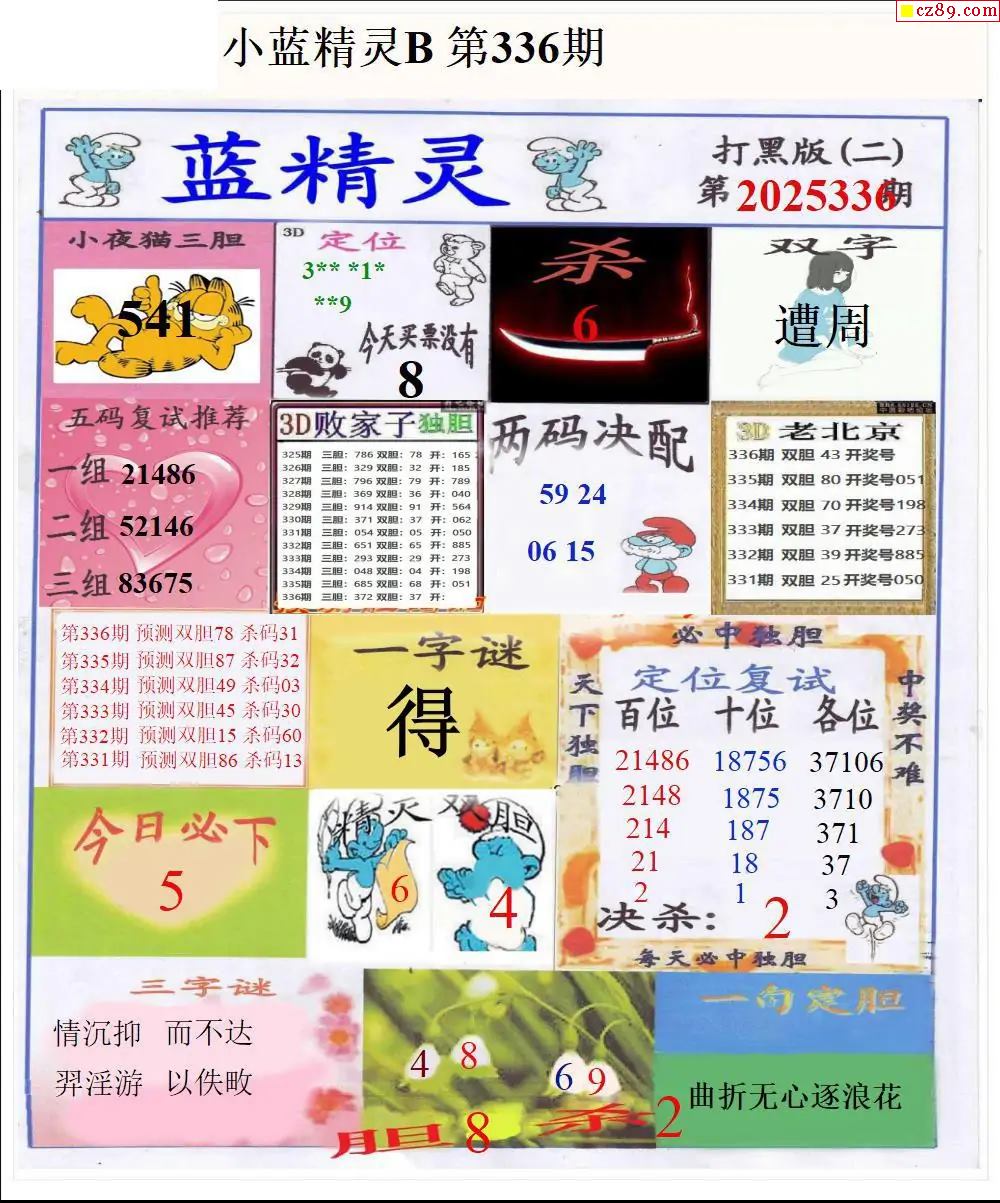 cz89.com
小蓝精灵B 第336期
蓝精灵
打黑版(二)
第2025336期
小夜猫三胆
541
3D 定位
3** *1*
**9
今天买票没有
8
杀
6
双字
遭周
五码复试推荐
一组 21486
二组 52146
三组 83675
3D败家子独胆
325期 三胆: 786 双胆: 78 开: 165
326期 三胆: 329 双胆: 32 开: 185
327期 三胆: 796 双胆: 79 开: 789
328期 三胆: 369 双胆: 36 开: 040
329期 三胆: 914 双胆: 91 开: 564
330期 三胆: 371 双胆: 37 开: 062
331期 三胆: 054 双胆: 05 开: 050
332期 三胆: 651 双胆: 65 开: 885
333期 三胆: 293 双胆: 29 开: 273
334期 三胆: 048 双胆: 04 开: 198
335期 三胆: 685 双胆: 68 开: 051
336期 三胆: 372 双胆: 37 开:
两码决配
59 24
06 15
3D 老北京
336期 双胆 43 开奖号
335期 双胆 80 开奖号051
334期 双胆 70 开奖号198
333期 双胆 37 开奖号273
332期 双胆 39 开奖号885
331期 双胆 25 开奖号050
第336期 预测双胆78 杀码31
第335期 预测双胆87 杀码32
第334期 预测双胆49 杀码03
第333期 预测双胆45 杀码30
第332期 预测双胆15 杀码60
第331期 预测双胆86 杀码13
一字谜
得
必中独胆
天下独胆
中奖不难
定位复试
百位 十位 各位
21486 18756 37106
2148 1875 3710
214 187 371
21 18 37
2 1 3
决杀: 2
每天必中独胆
今日必下
5
精灵双胆
6 4
三字谜
情沉抑 而不达
羿淫游 以佚畋
4 8 6 9
胆 8 杀 2
一句定胆
曲折无心逐浪花